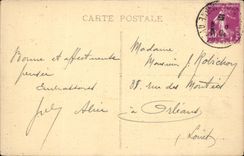 CARTE POSTALE
Bonne et affectueuse
pensée
Embrassons
Madame
Monsieur J. Robichon
38 rue des Montées
à Orléans
Loiret